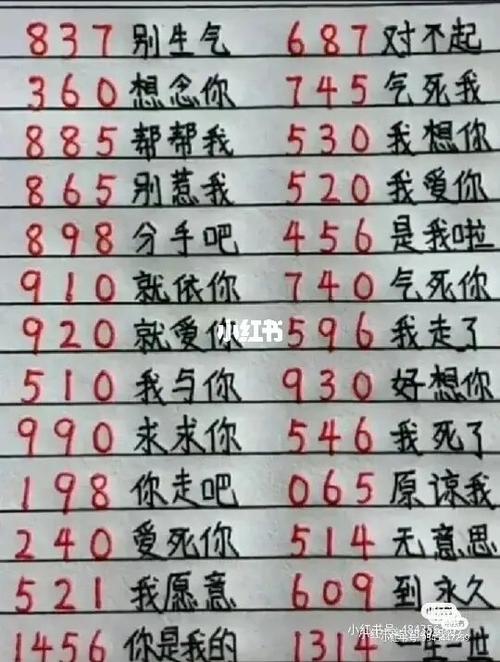 837 别生气 687 对不起
360 想念你 745 气死我
885 帮帮我 530 我想你
865 别惹我 520 我爱你
898 分手吧 456 是我啦
910 就依你 740 气死你
小红书
920 就爱你 596 我走了
510 我与你 930 好想你
990 求求你 546 我死了
198 你走吧 065 原谅我
240 爱死你 514 无意思
521 我愿意 609 到永久
小红书
1456 你是我的 1314 一生一世
小红书号: